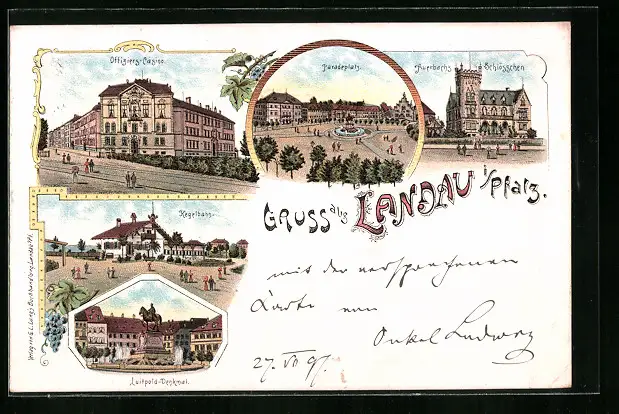 Offiziers-Casino.
Paradeplatz.
Auerbachs Schlösschen
Kegelbahn.
GRUSS aus LANDAU i/Pfalz.
mit der versprochenen
Karte von
Onkel Ludwig
27. VII 97.
Luitpold-Denkmal.
Verlag von E. L. Lang's Buchhandlung, Landau Pf.